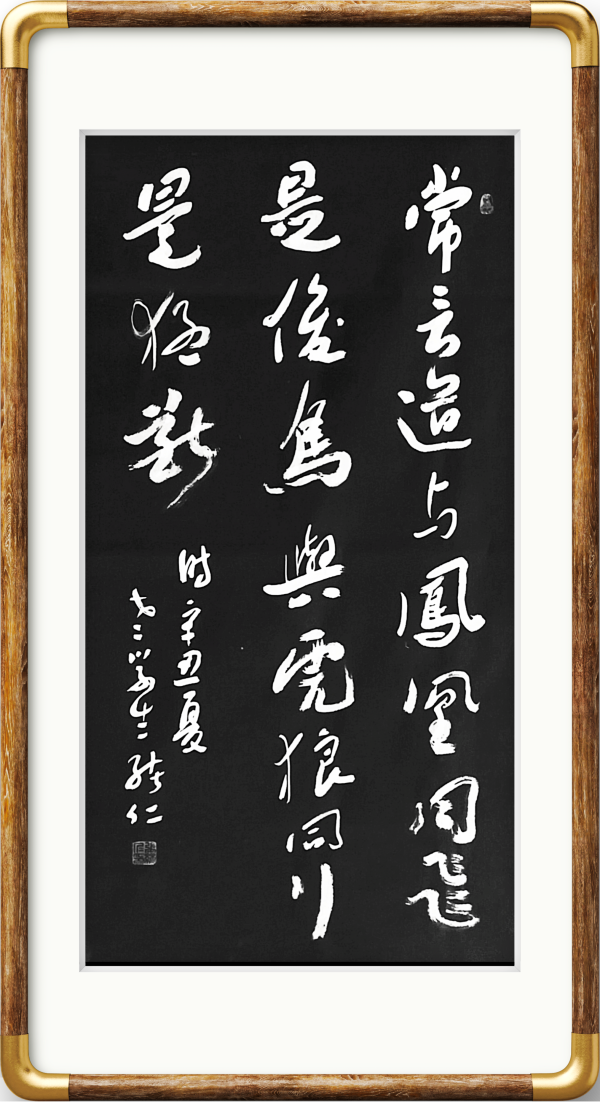 常言道与鳳凰同飛
是俊鳥與虎狼同行
是猛獸
时辛丑夏
仁